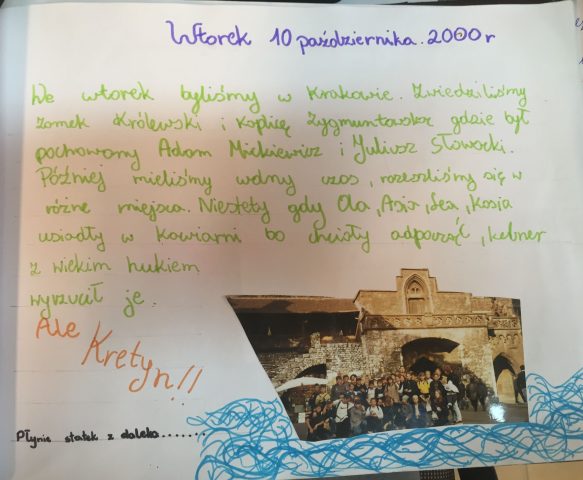 Wtorek 10 października. 2000 r
We wtorek byliśmy w Krakowie. Zwiedziliśmy
zamek Królewski i Kaplicę Zygmuntowską gdzie był
pochowany Adam Mickiewicz i Juliusz Słowacki.
Później mieliśmy wolny czas, rozeszliśmy się w
różne miejsca. Niestety gdy Ola, Asia, Iza, Kasia
usiadły w Kawiarni bo chciały odpocząć, kelner
z wiekim hukiem
wyrzucił je.
Ale
Kretyn!!
Płynie statek z daleka.......